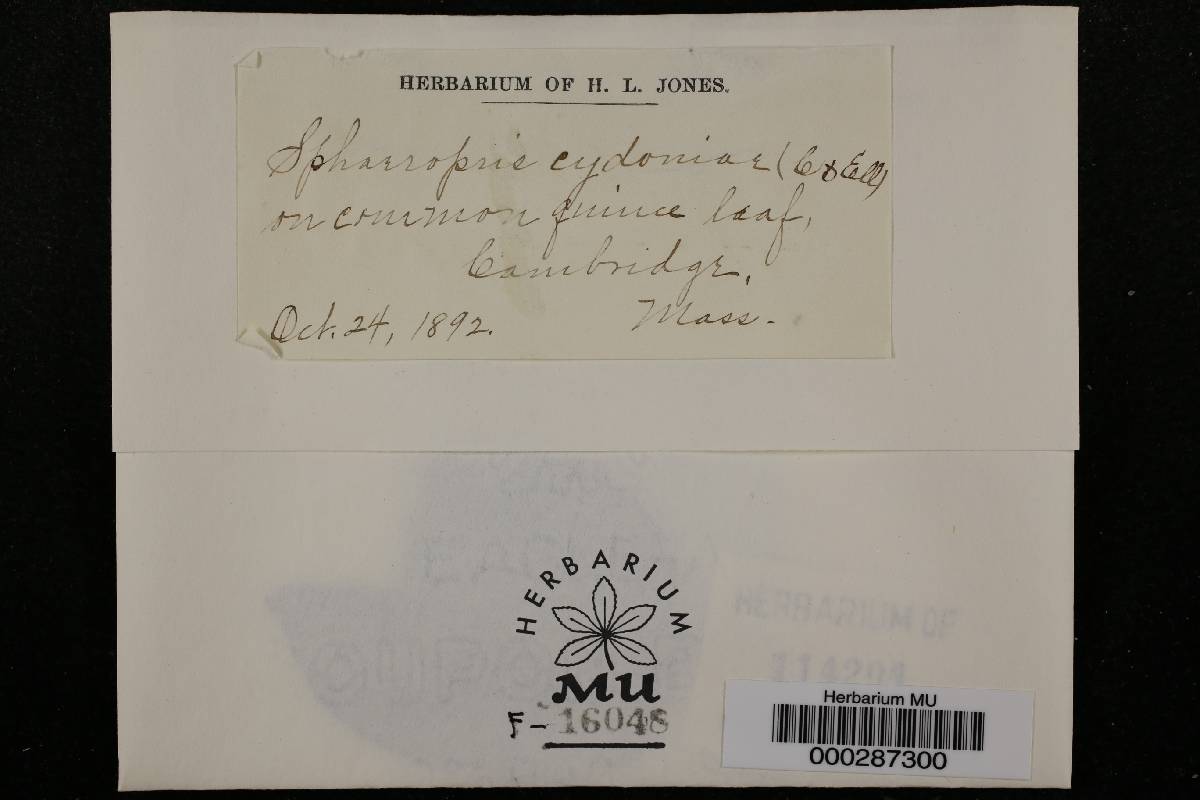 HERBARIUM OF H. L. JONES.
Sphaeropsis cydoniae (C & Ell)
on common quince leaf,
Cambridge,
Mass.
Oct. 24, 1892.
HERBARIUM
MU
F-16048
HERBARIUM OF
Herbarium MU
000287300